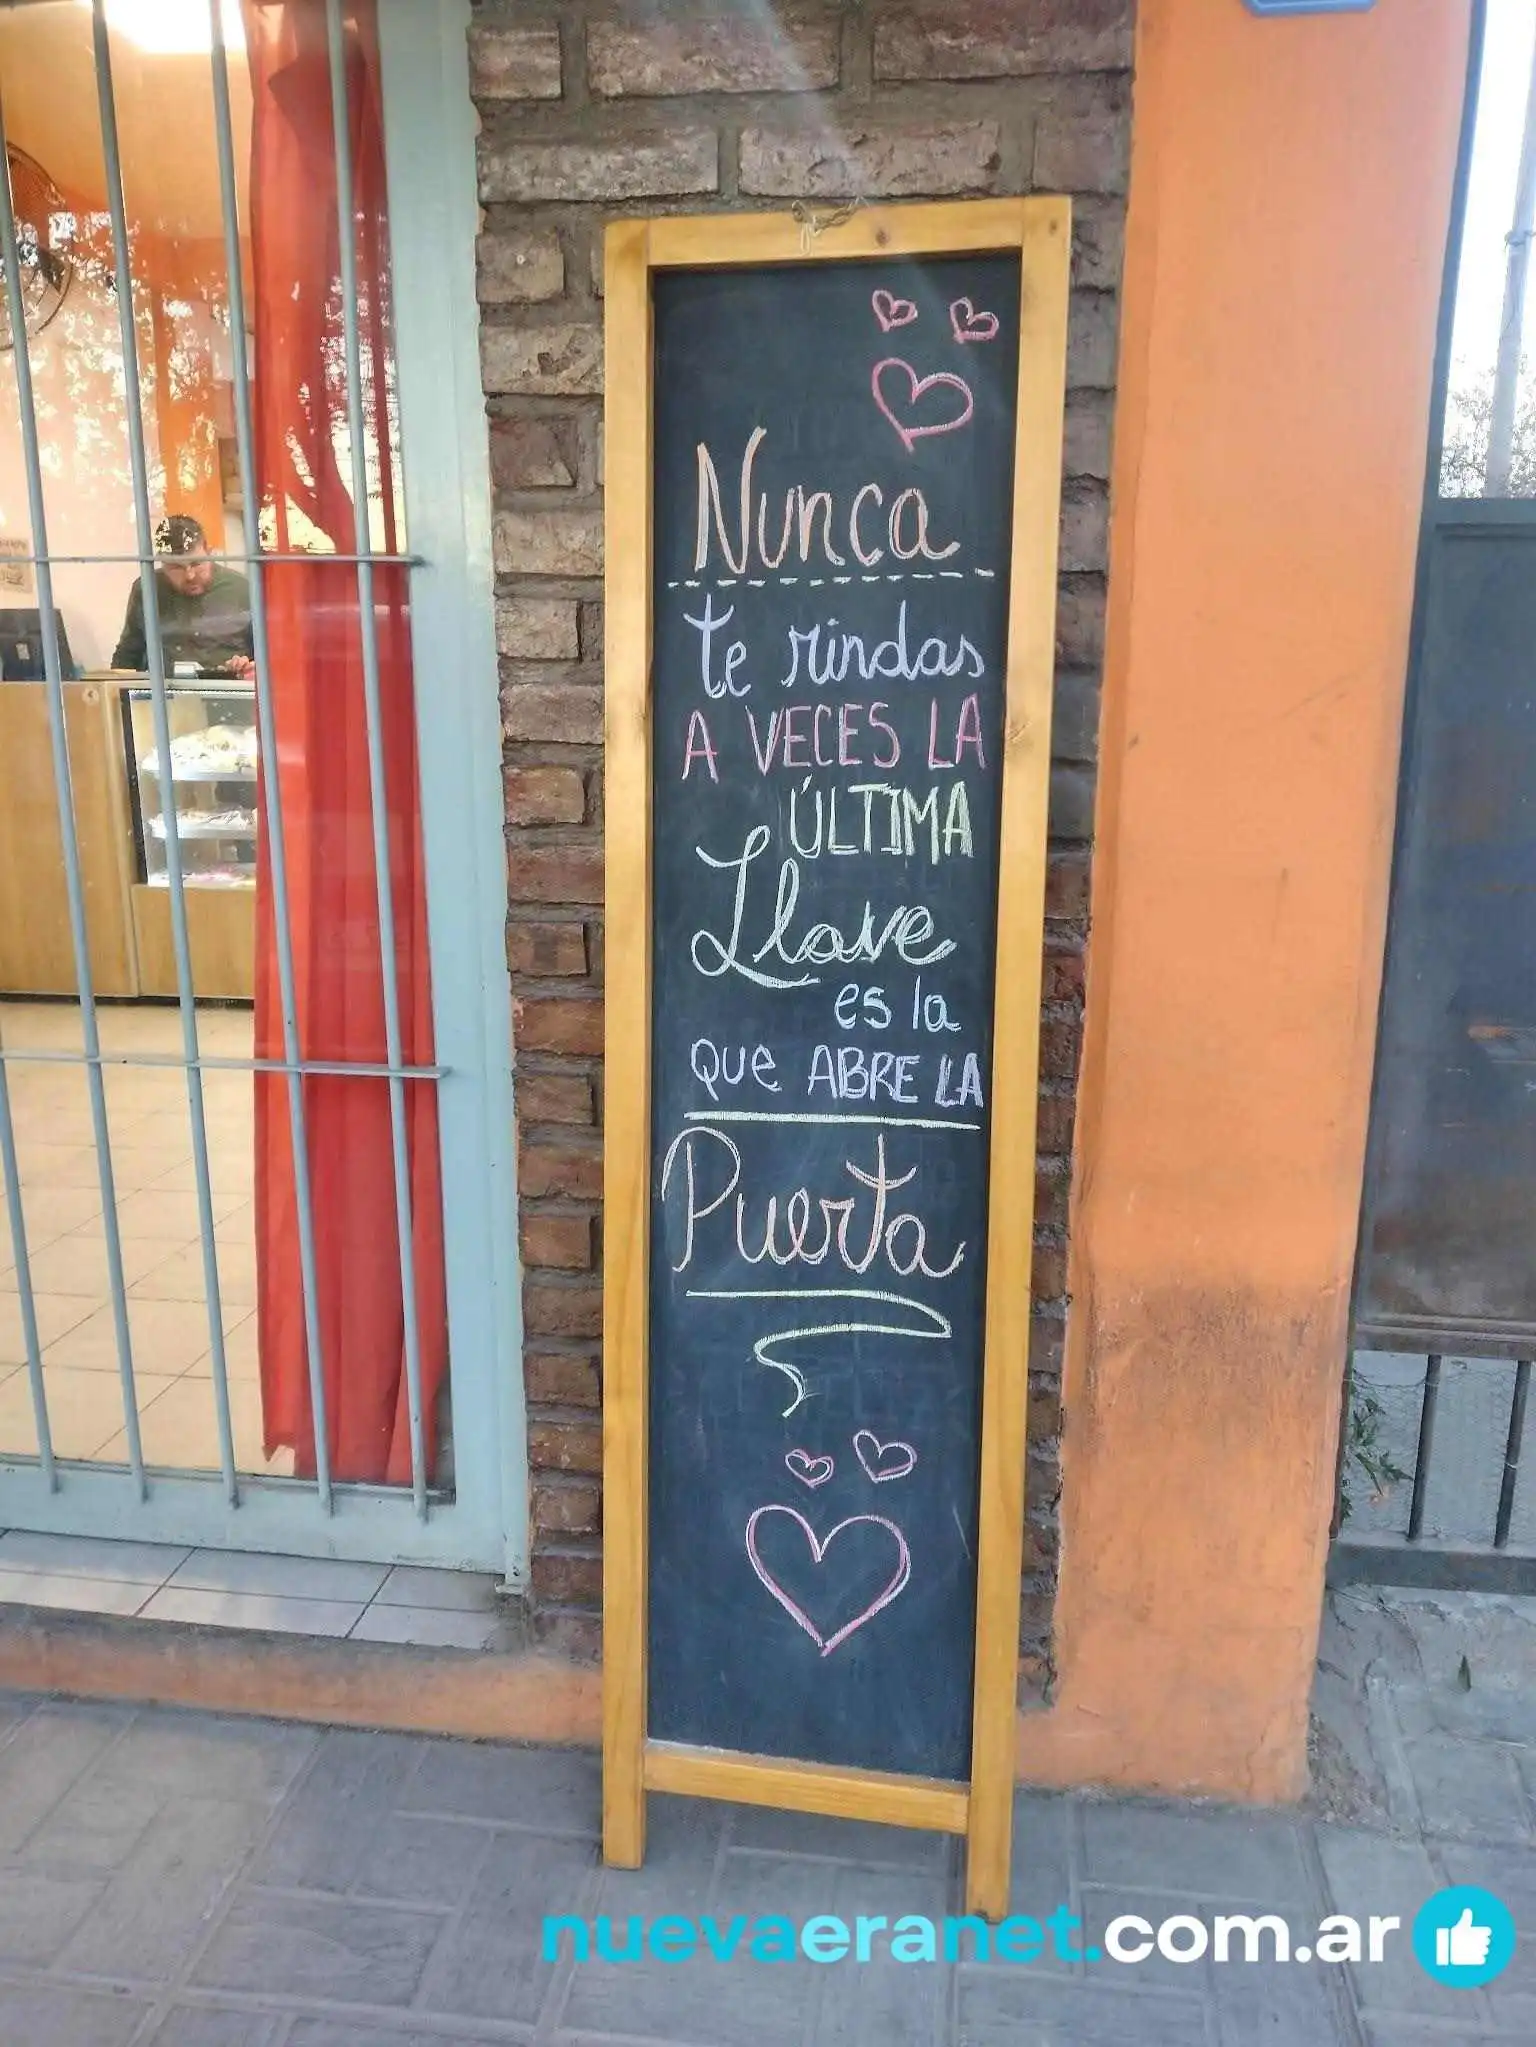 Nunca
te rindas
A VECES LA
ÚLTIMA
Llave
es la
que ABRE LA
Puerta
nuevaeranet.com.ar